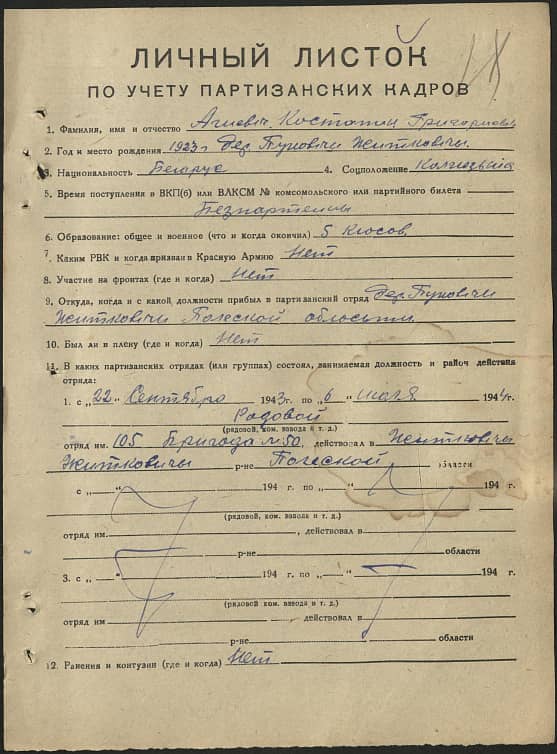 ЛИЧНЫЙ ЛИСТОК
ПО УЧЕТУ ПАРТИЗАНСКИХ КАДРОВ
1. Фамилия, имя и отчество Агиевич Костатин Григориевич
2. Год и место рождения 1923 г дер. Пуховичи Житковичи
3. Национальность Беларус 4. Соцположение
5. Время поступления в ВКП(б) или ВЛКСМ № комсомольского или партийного билета
6. Образование: общее и военное (что и когда окончил) 5 класов
7. Каким РВК и когда призван в Красную Армию Нет
8. Участие на фронтах (где и когда) Нет
9. Откуда, когда и с какой должности прибыл в партизанский отряд дер. Пуховичи
Житковичи
10. Был ли в плену (где и когда) Нет
11. В каких партизанских отрядах (или группах) состоял, занимаемая должность и район действия
отряда:
1. с „22“ Сентября 1943 г. по „6“ июля 1944 г.
Радовой
(рядовой, ком. взвода и т. д.)
отряд им. 105 Бригада №50, действовал в Житковичы
Житковичы р-не Полеской области
с „ “ 194 г. по „ “ 194 г.
(рядовой, ком. взвода и т. д.)
отряд им. , действовал в
р-не области
3. с „ “ 194 г. по „ “ 194 г.
(рядовой, ком. взвода и т. д.)
отряд им , действовал в
р-не области
12. Ранения и контузии (где и когда) Нет